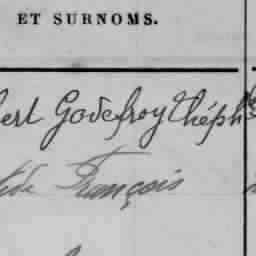 ET SURNOMS.
ert Godefroy Théph
ide François